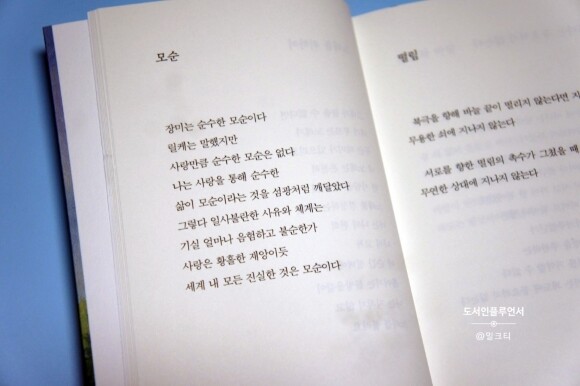 모순
장미는 순수한 모순이다
릴케는 말했지만
사랑만큼 순수한 모순은 없다
나는 사랑을 통해 순수한
삶이 모순이라는 것을 섬광처럼 깨달았다
그렇다 일사불란한 사유와 체계는
기실 얼마나 음험하고 불순한가
사랑은 황홀한 재앙이듯
세계 내 모든 진실한 것은 모순이다
떨림
북극을 향해 바늘 끝이 떨리지 않는다면 지
무용한 쇠에 지나지 않는다
서로를 향한 떨림의 촉수가 그쳤을 때
무연한 상대에 지나지 않는다
도서인플루언서
@밀크티